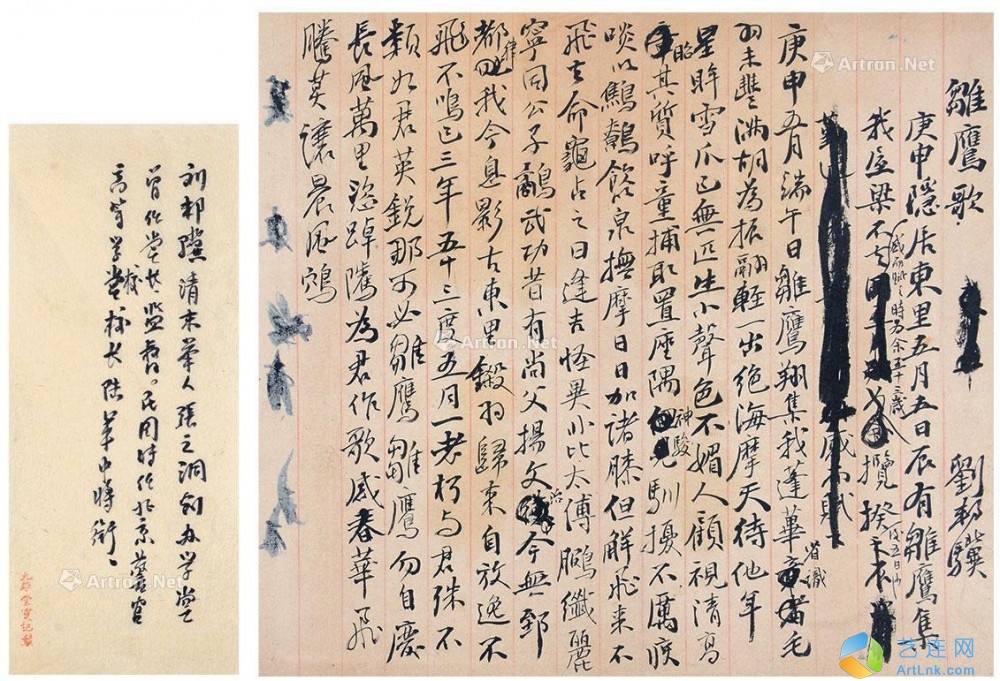 雛鷹歌 劉邨驥
庚申隱居東里五月五日辰有雛鷹集
我屋梁不去
感而賦之時方余五十三歲
攬揆之
感而賦
庚申五月端午日雛鷹翔集我蓬蓽毛
省識
羽未豐滿胡為振翮輕一出絕海摩天待他年
星眸雪爪已無匹生小聲色不媚人顧視清高
昭其質呼童捕取置座隅神駿馴擾不厲疾
啖以鷦鷯飲泉撫摩日日加諸膝但解飛來不
飛去命龜占之曰逢吉怪異非比太傅鵩纖麗
寧同公子鷸武功昔有尚父揚文治今無郅
都律我今息影古東里鎩羽歸來自放逸不
飛不鳴已三年五十三度五月一老朽与君殊不
類如君英銳那可必雛鷹雛鷹勿自慶
長風萬里恣踔騰為君作歌感春華飛
騰莫讓晨風鴥
刘邨驥清末举人張之洞創办学堂
曾作堂长监督。民国时任北京蒙官
高等学校校长陸军中将衔。
Artron.Net
艺连网
ArtLnk.com